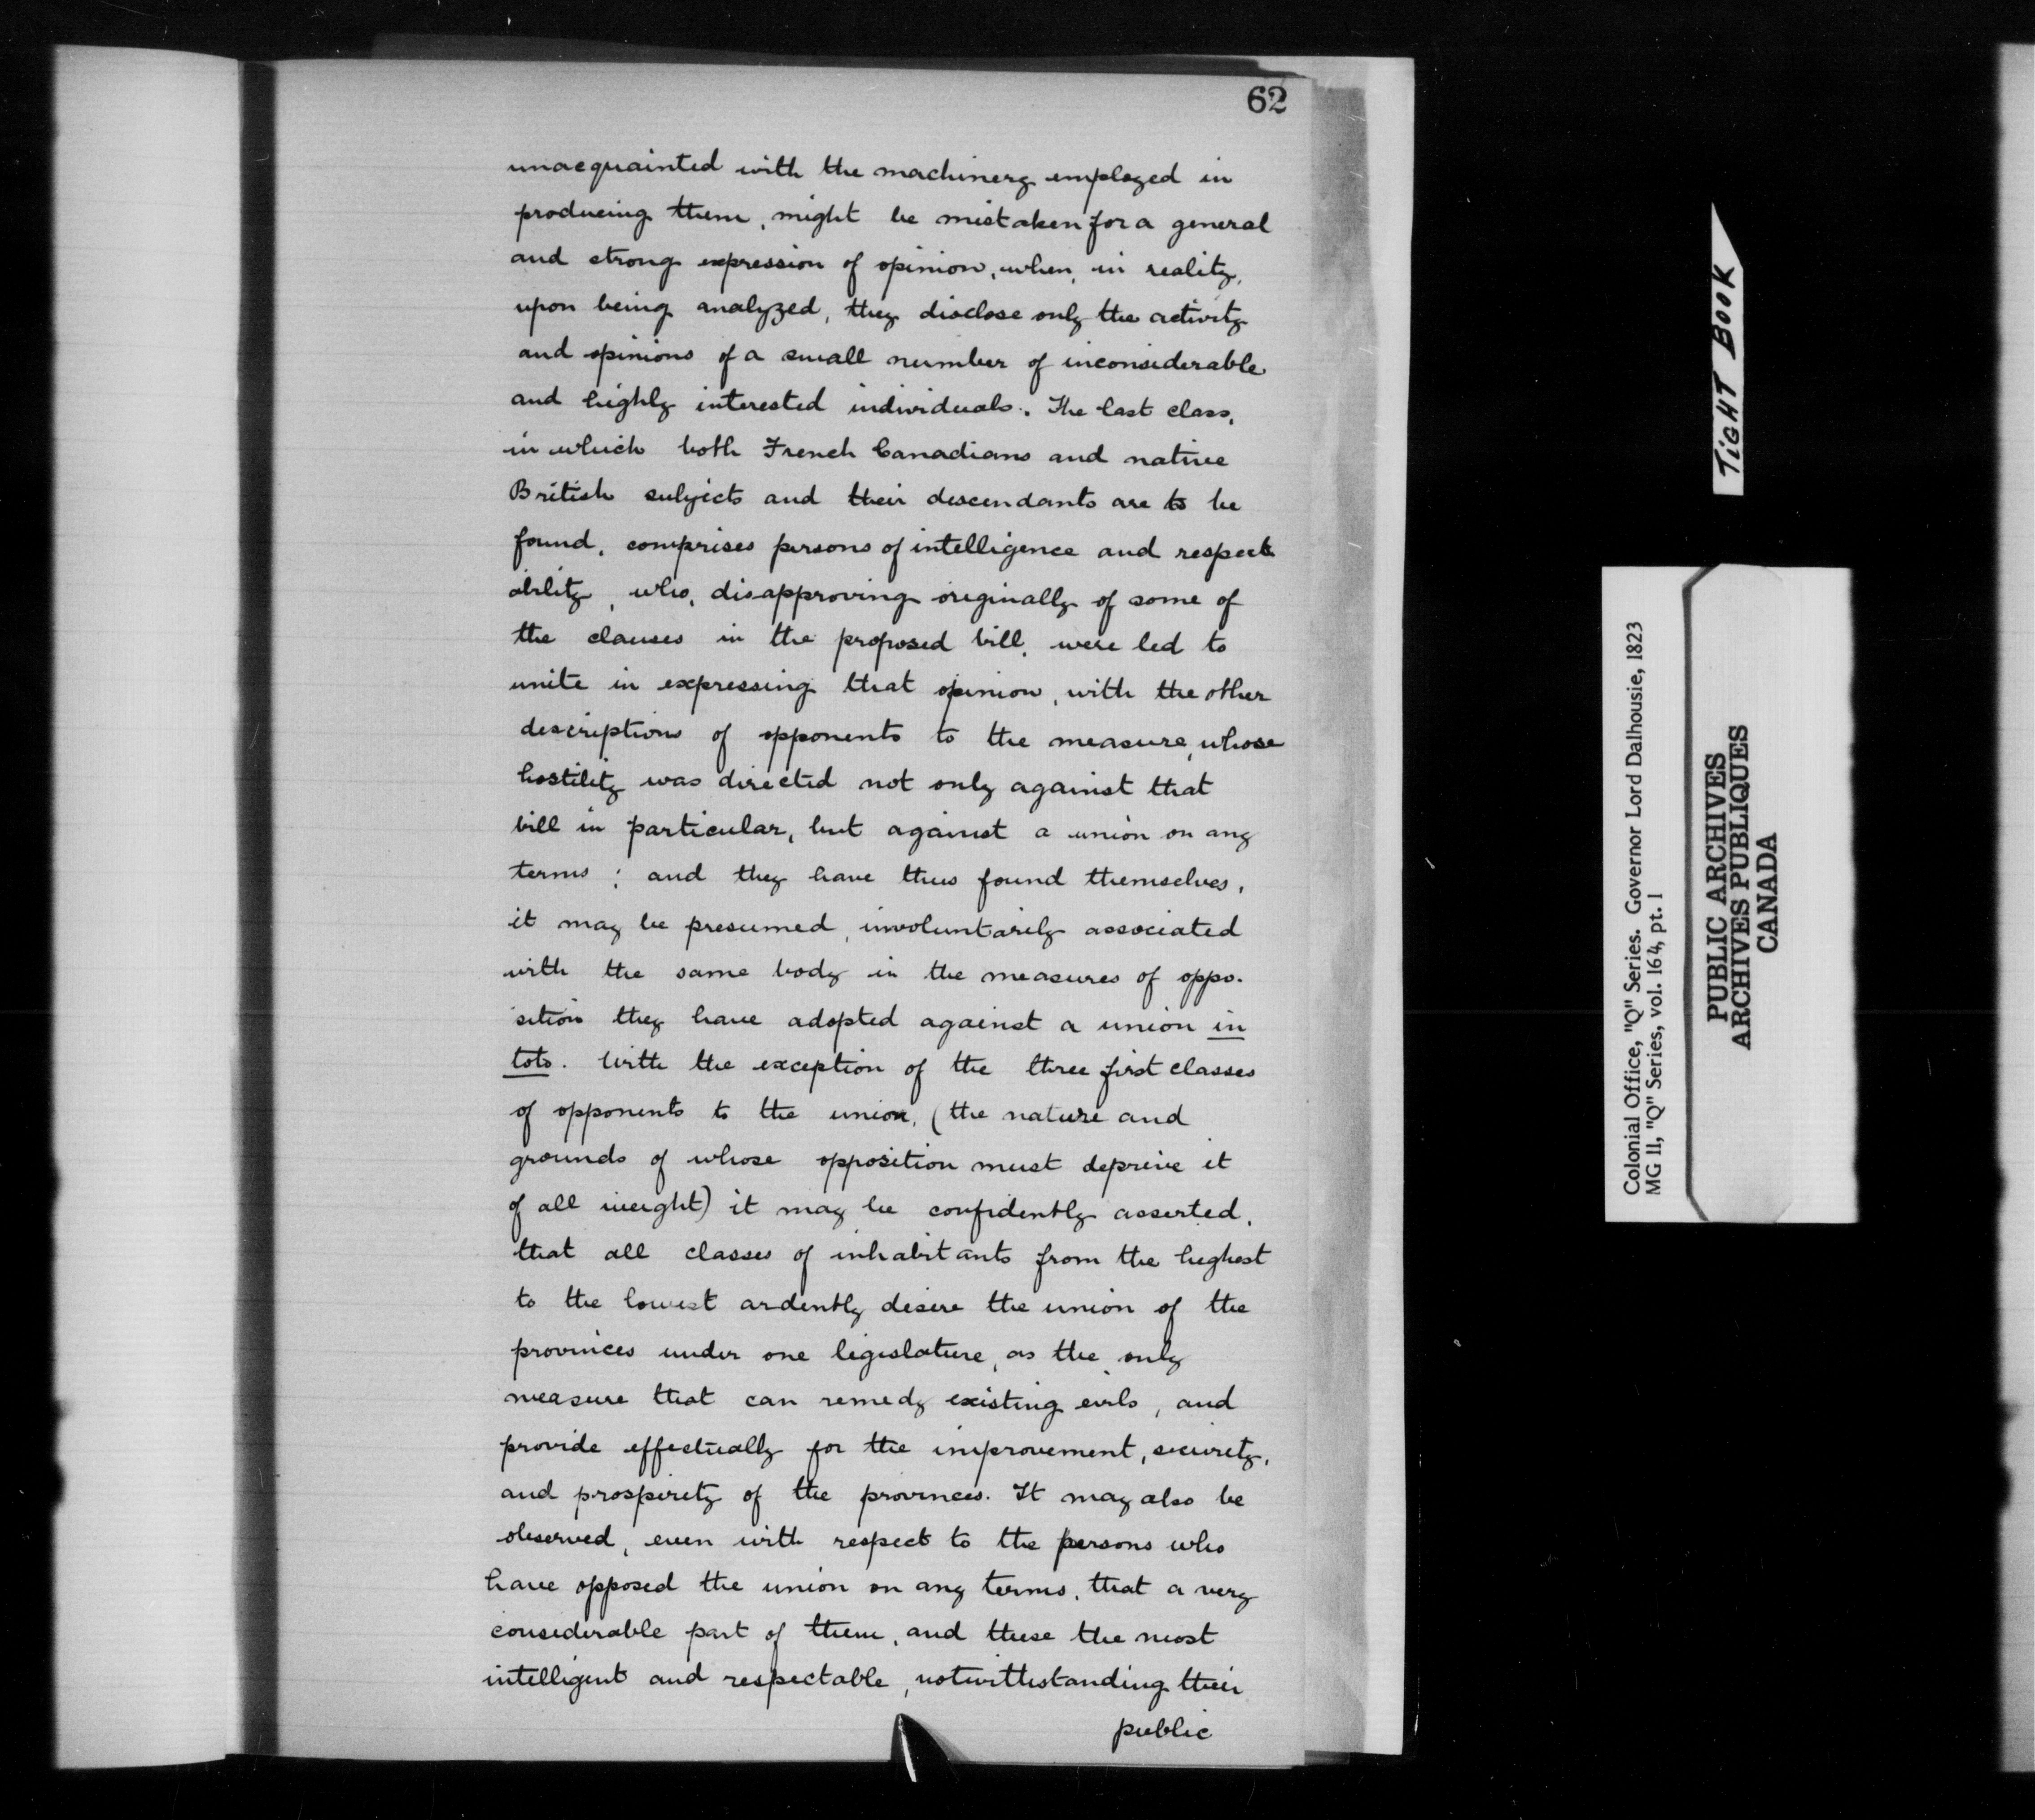 62
unacquainted with the machinery employed in
producing them, might be mistaken for a general
and strong expression of opinion, when, in reality,
upon being analyzed, they disclose only the activity
and opinions of a small number of inconsiderable
and highly interested individuals. The last class,
in which both French Canadians and native
British subjects and their descendants are to be
found, comprises persons of intelligence and respect
ability, who, disapproving originally of some of
the clauses in the proposed bill, were led to
unite in expressing that opinion, with the other
descriptions of opponents to the measure, whose
hostility was directed not only against that
bill in particular, but against a union on any
terms; and they have thus found themselves,
it may be presumed, involuntarily associated
with the same body in the measures of oppo-
sition they have adopted against a union in
toto. With the exception of the three first classes
of opponents to the union, (the nature and
grounds of whose opposition must deprive it
of all weight) it may be confidently asserted,
that all classes of inhabitants from the highest
to the lowest ardently desire the union of the
provinces under one legislature, as the only
measure that can remedy existing evils, and
provide effectually for the improvement, security,
and prosperity of the provinces. It may also be
observed, even with respect to the persons who
have opposed the union on any terms, that a very
considerable part of them, and these the most
intelligent and respectable, notwithstanding their
public
TIGHT BOOK
Colonial Office, "Q" Series. Governor Lord Dalhousie, 1823
MG 11, "Q" Series, vol. 164, pt. 1
PUBLIC ARCHIVES
ARCHIVES PUBLIQUES
CANADA